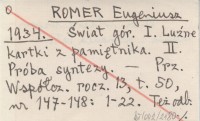 ROMER Eugeniusz
1934. Świat gór. I. Luźne
kartki z pamiętnika. II.
Próba syntezy. — Prz.
Współcz. rocz. 13, t. 50,
nr 147-148: 1-22. Też odb.